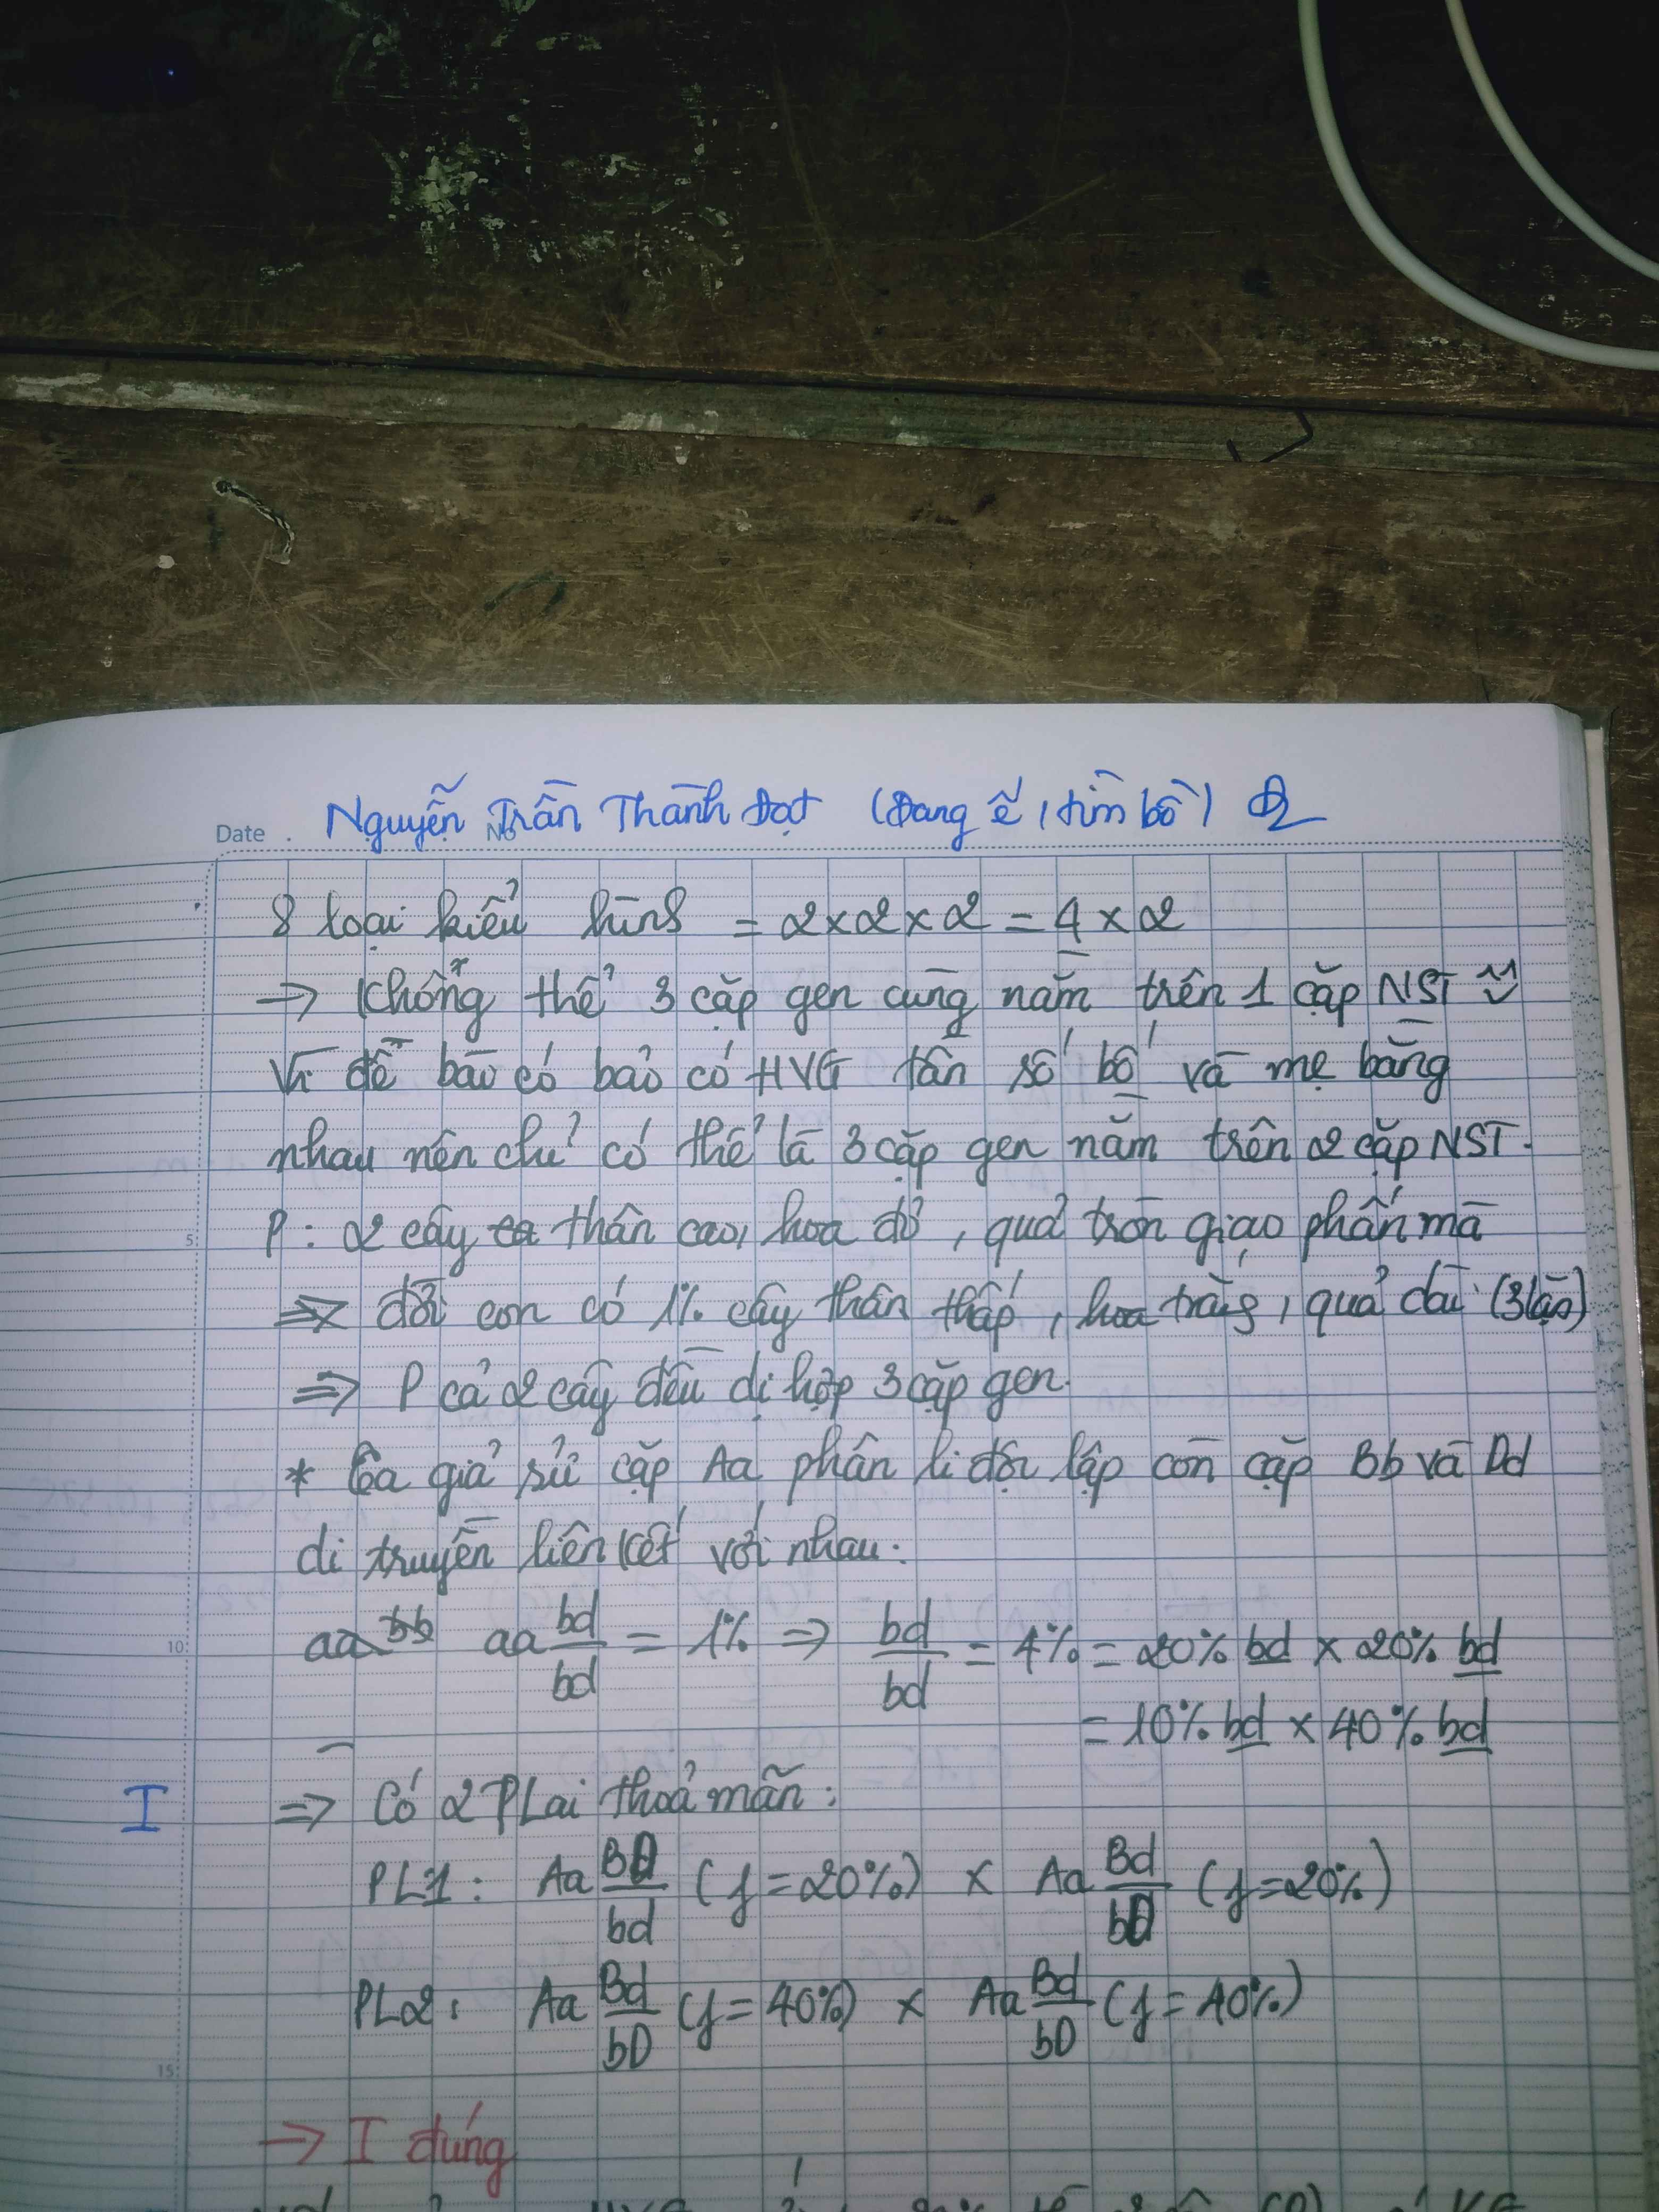 Nguyễn Trần Thành Đạt (Đang ế, tìm bồ)
Date . No
8 loại kiểu hình = 2x2x2 = 4 x 2
→ Không thể 3 cặp gen cùng nằm trên 1 cặp NST
Vì đề bào có bảo có HVG tần số bố và mẹ bằng
nhau nên chỉ có thể là 3 cặp gen nằm trên 2 cặp NST.
5
P: 2 cây thân cao, hoa đỏ, quả tròn giao phấn mà
=> đời con có 1% cây thân thấp, hoa trắng, quả dài (3 lặn)
=> P cả 2 cây đều dị hợp 3 cặp gen.
* Ta giả sử cặp Aa phân li độc lập còn cặp Bb và Dd
di truyền liên kết với nhau:
10
aa bb aa bd/bd = 1% => bd/bd = 4% = 20% bd x 20% bd
= 10% bd x 40% bd
I => Có 2 PLai thoả mãn:
PL1: Aa BD/bd (f=20%) x Aa Bd/bD (f=20%)
PL2: Aa Bd/bD (f=40%) x Aa Bd/bD (f=40%)
15
→ I đúng